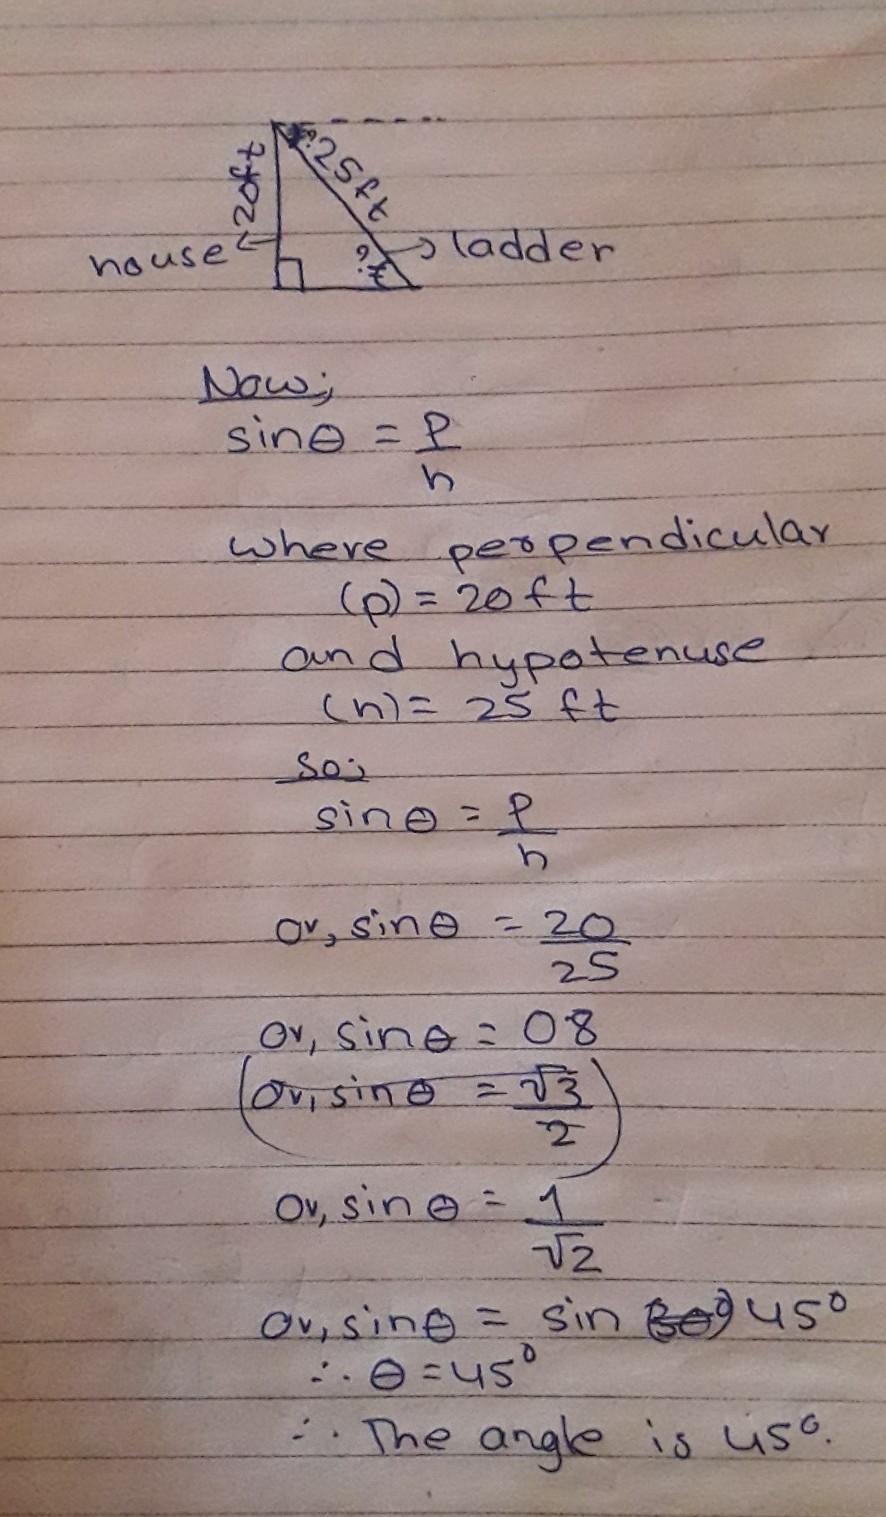 20ft
25ft
house
?
ladder
Now;
sinθ = P/h
where perpendicular
(p) = 20ft
and hypotenuse
(h) = 25 ft
So;
sinθ = P/h
or, sinθ = 20/25
or, sinθ = 0.8
or, sinθ = √3/2
or, sinθ = 1/√2
or, sinθ = sin 45°
∴ θ = 45°
∴ The angle is 45°.